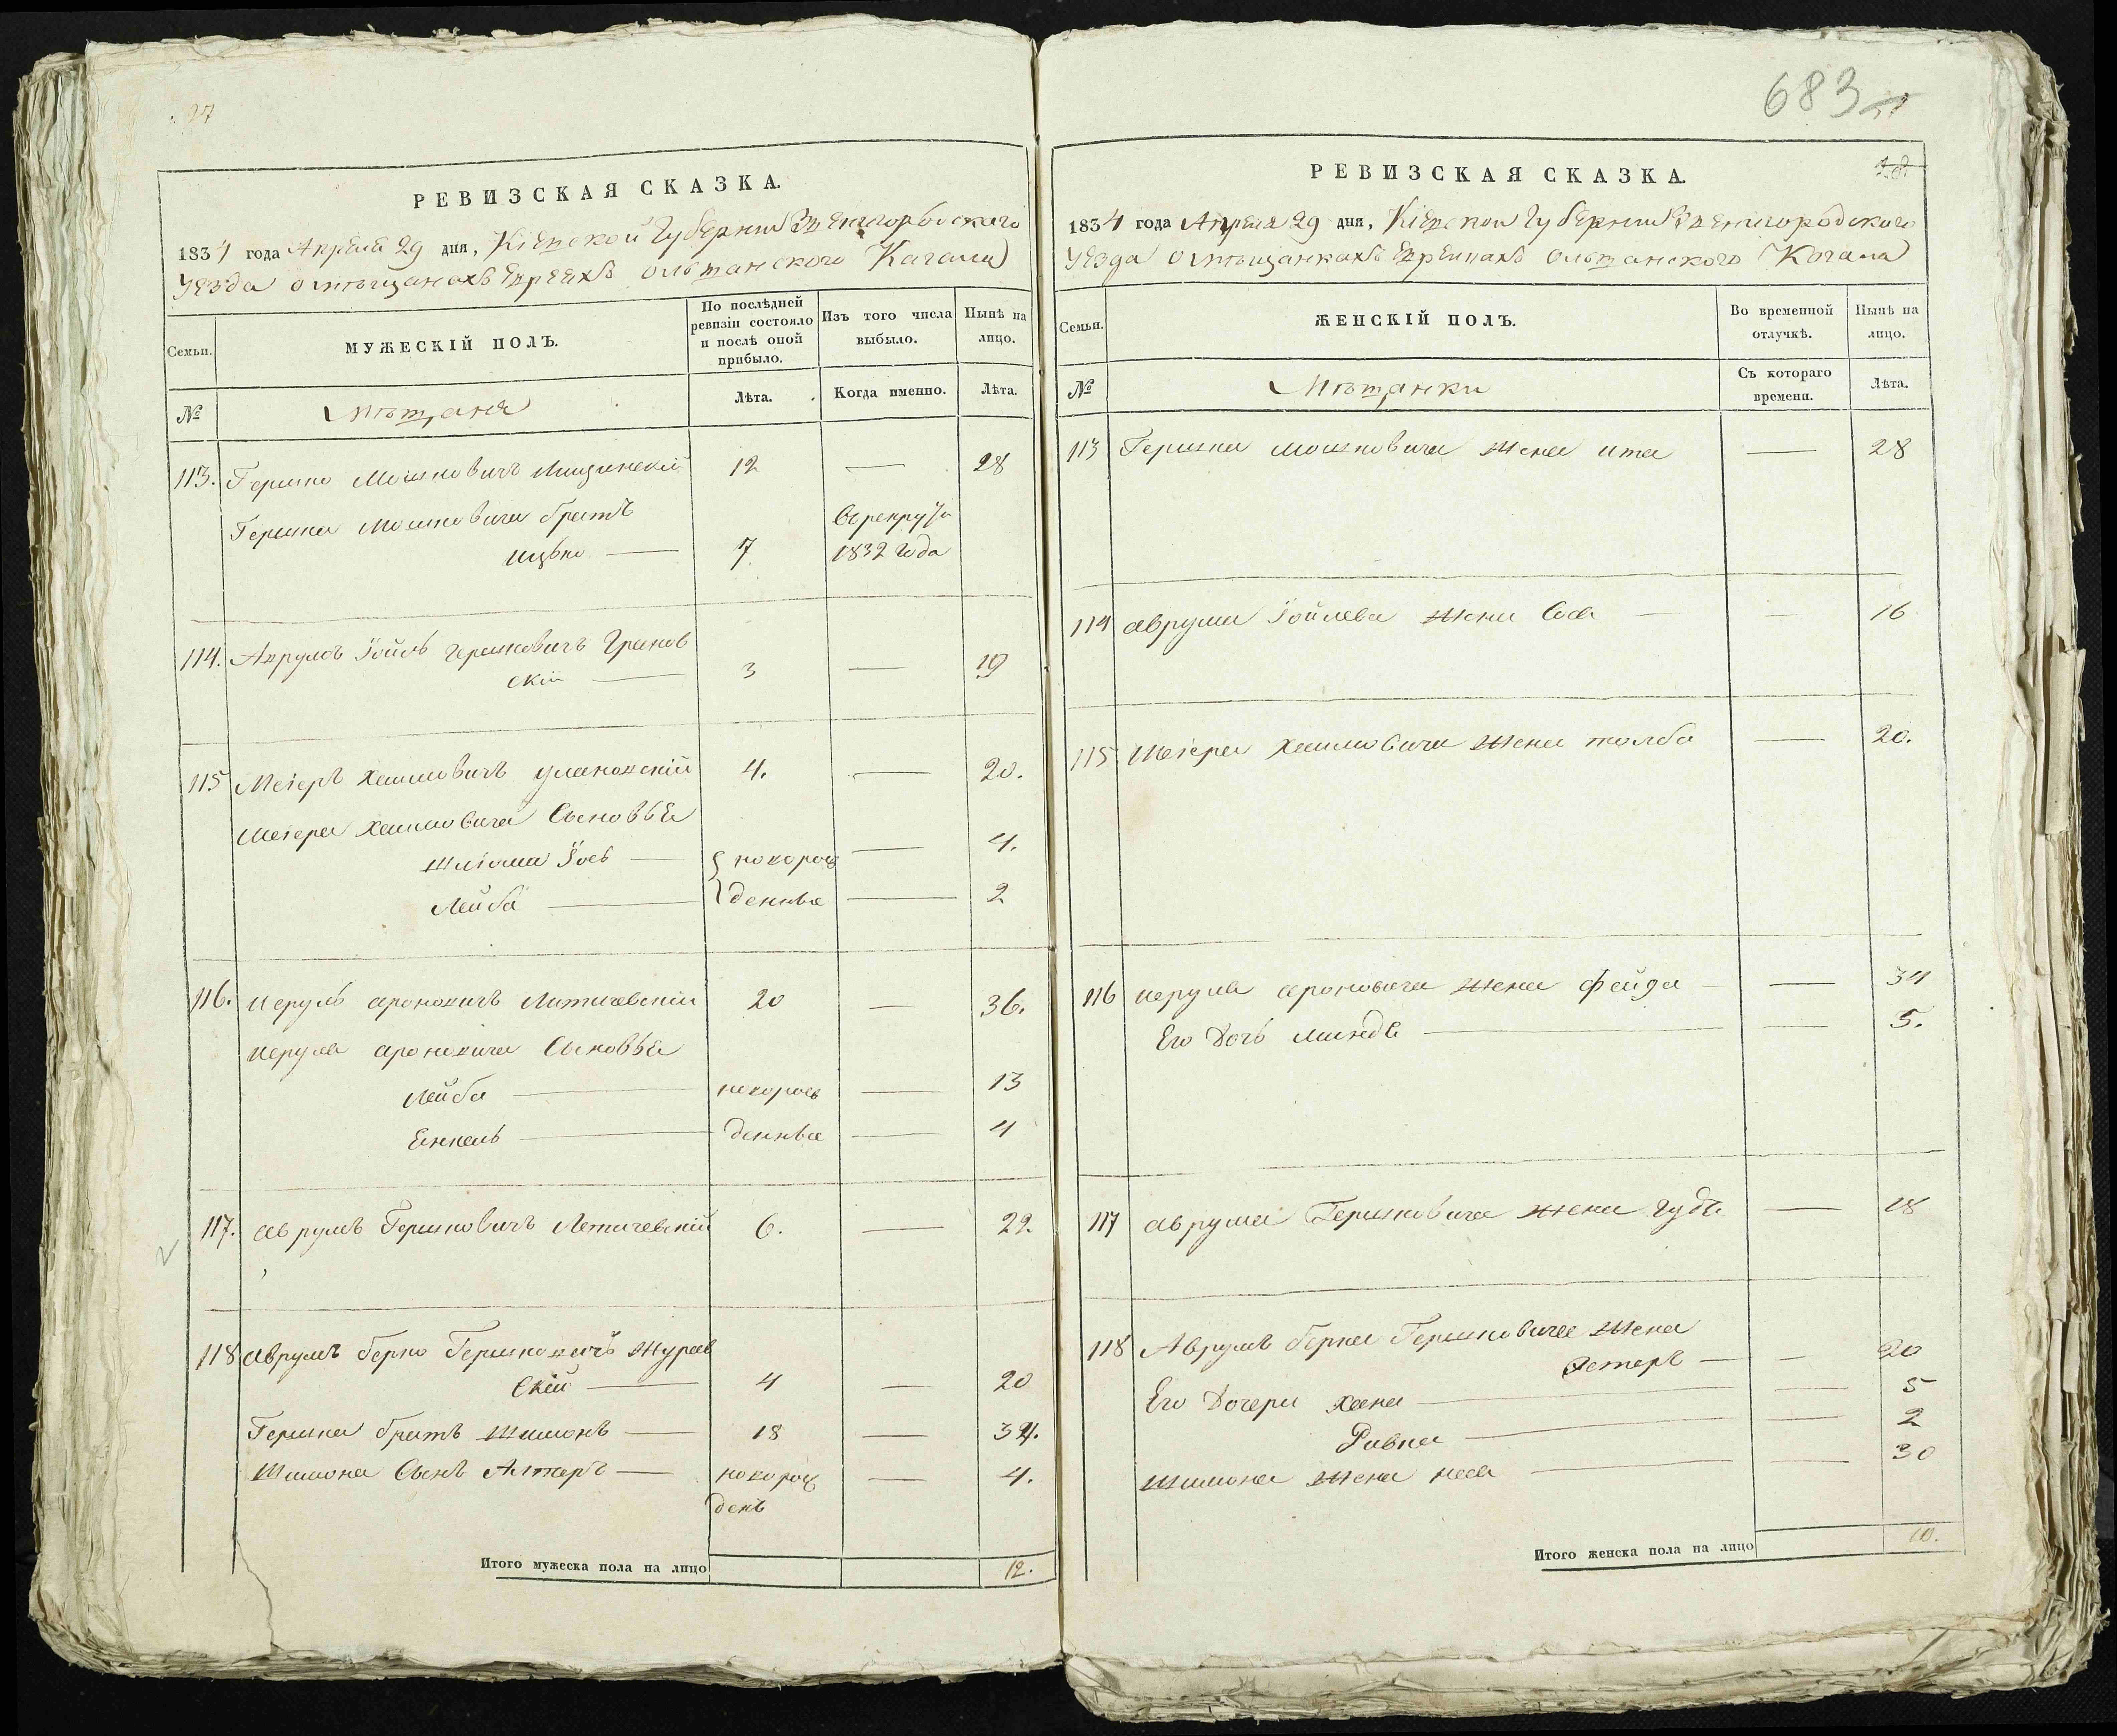 27
РЕВИЗСКАЯ СКАЗКА.
1834 года Апреля 29 дня, Кіевской Губерніи Звенигородскаго
Уезда о мѣщанахъ Евреяхъ Ольшанского Кагала
Семьи.
МУЖЕСКІЙ ПОЛЪ.
По послѣдней
ревизіи состояло
и послѣ оной
прибыло.
Изъ того числа
выбыло.
Нынѣ на
лицо.
№
Мѣщаня
Лѣта.
Когда именно.
Лѣта.
113. Гершко Мошковичъ 12 — 28
Гершка Мошковича братъ
Ицько — 7 1832 года
114. Аврумъ Іойль Гершковичъ Гранов
скій — 3 — 19
115 Меіеръ Хаимовичъ Улановскій 4. — 20.
Меіера Хаимовича Сыновья
Шлiома Іось — новорож — 4.
Лейба — денные — 2
116. Иерулъ Ароновичъ Литичевскій 20 — 36.
Иерула Ароновича Сыновья
Лейба — новорож — 13
Янкель — денные — 4
117. Аврумъ Гершковичъ Летичевскій 6. — 22.
118 Аврумъ Берко Гершковичъ Журав
скій — 4 — 20
Гершка братъ Шимонъ — 18 — 34.
Шимона Сынъ Алтеръ — новорож — 4.
денъ
Итого мужеска пола на лицо 12.
683
РЕВИЗСКАЯ СКАЗКА.
1834 года Апреля 29 дня, Кіевской Губерніи Звенигородскаго
Уезда о мѣщанкахъ Еврейкахъ Ольшанского Кагала
Семьи.
ЖЕНСКІЙ ПОЛЪ.
Во временной
отлучкѣ.
Нынѣ на
лицо.
№
Мѣщанки
Съ котораго
времени.
Лѣта.
113 Гершка Мошковича жена Ита — 28
114 Аврума Іойлева жена Сося — — 16
115 Меіера Хаимовича жена Толба — 20.
116 Иерула Ароновича жена Фейга — — 34
Его Дочь Минде — — 5.
117 Аврума Гершковича жена — 18
118 Аврумъ Берка Гершковича жена
Эстеръ — — 20
Его Дочери Хана — — 5
Ривка — — 2
Шимона жена Неся — — 30
Итого женска пола на лицо 10.